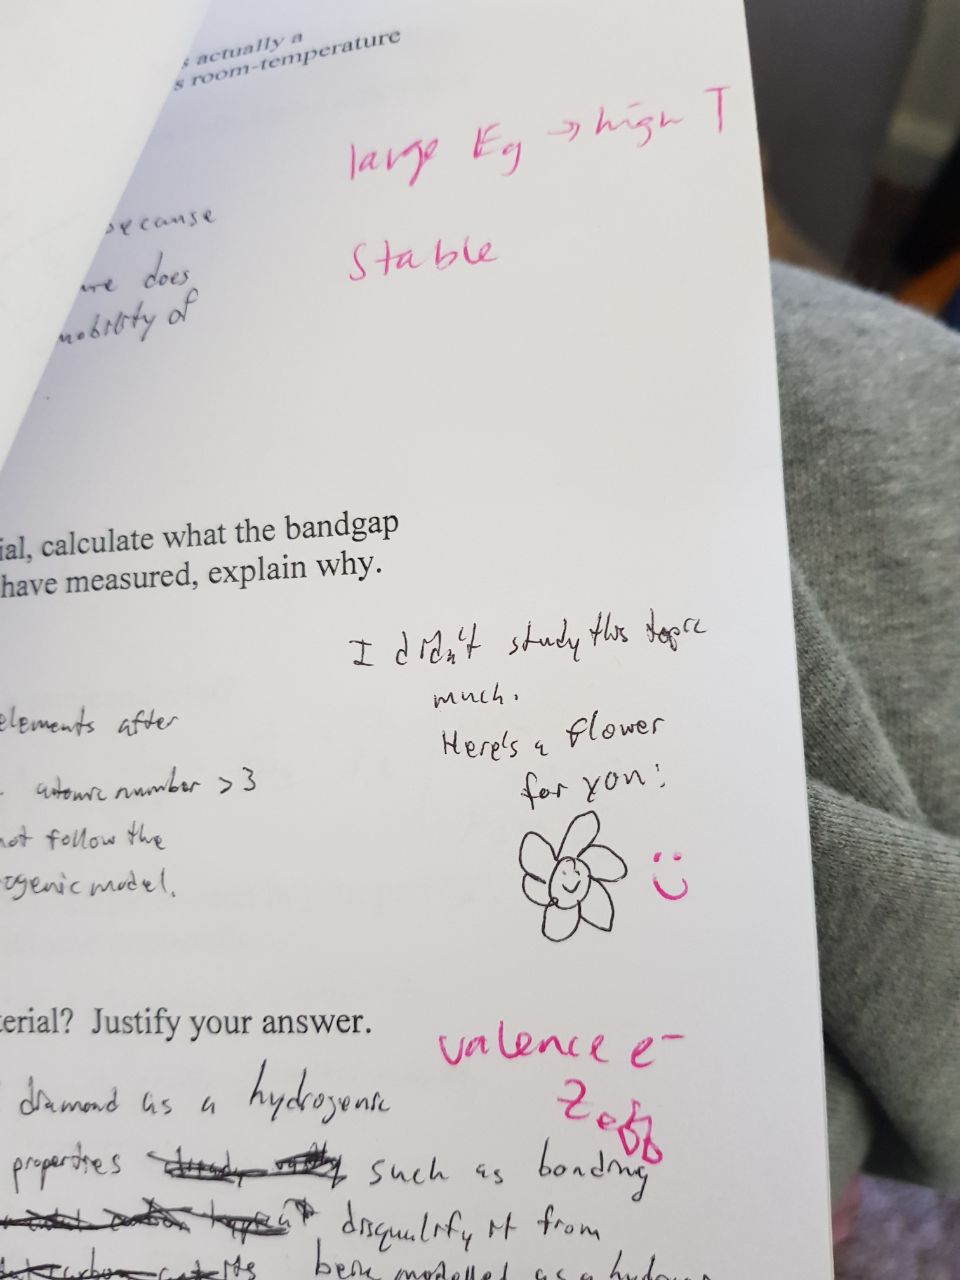 s actually a
s room-temperature
large Eg → high T
because
stable
does
mobility of
ial, calculate what the bandgap
have measured, explain why.
I didn't study this topic
much.
elements after
Here's a flower
for you:
atomic number > 3
not follow the
ogenic model.
:)
terial? Justify your answer.
valence e-
diamond as a hydrogenic
Zeff
properties such as bonding
disqualify it from
being modelled as a